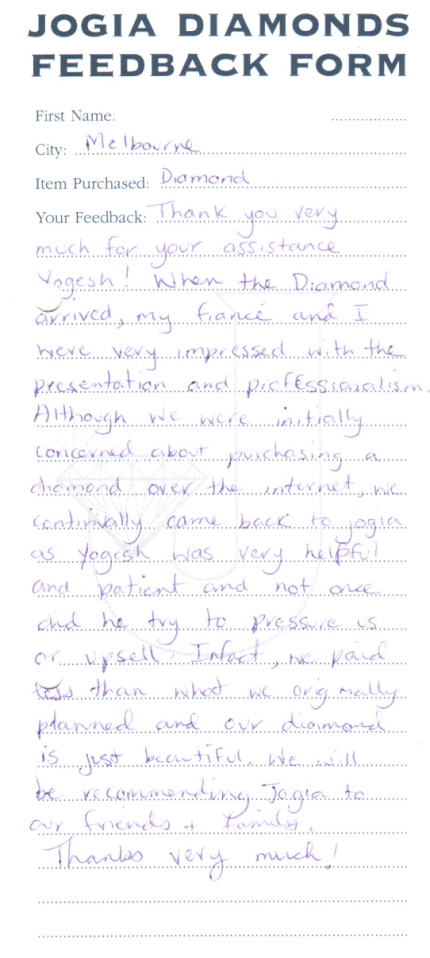 JOGIA DIAMONDS
FEEDBACK FORM
First Name:
City: Melbourne
Item Purchased: Diamond
Your Feedback: Thank you very
much for your assistance
Yogesh! When the Diamond
arrived, my fiancé and I
were very impressed with the
presentation and professionalism.
Although we were initially
concerned about purchasing a
diamond over the internet, we
continually came back to jogia
as Yogesh was very helpful
and patient and not once
did he try to pressure us
or upsell. Infact, we paid
less than what we originally
planned and our diamond
is just beautiful. We will
be recommending Jogia to
our friends + family.
Thanks very much!